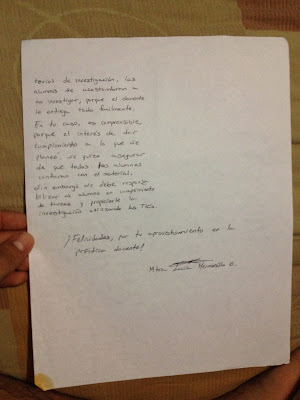 terios de investigación, los
alumnos se acostumbran a
no investigar, porque el docente
le entrega todo fácilmente.
En tu caso, es comprensible,
porque el interés de dar
cumplimiento a lo que se
planeó, se quiso asegurar
de que todos los alumnos
contaran con el material.
Sin embargo se debe responsa
bilizar al alumno en cumplimiento
de tareas y propiciarle la
investigación utilizando las Tic's.
¡Felicidades, por tu aprovechamiento en la
práctica docente!
Mtra.